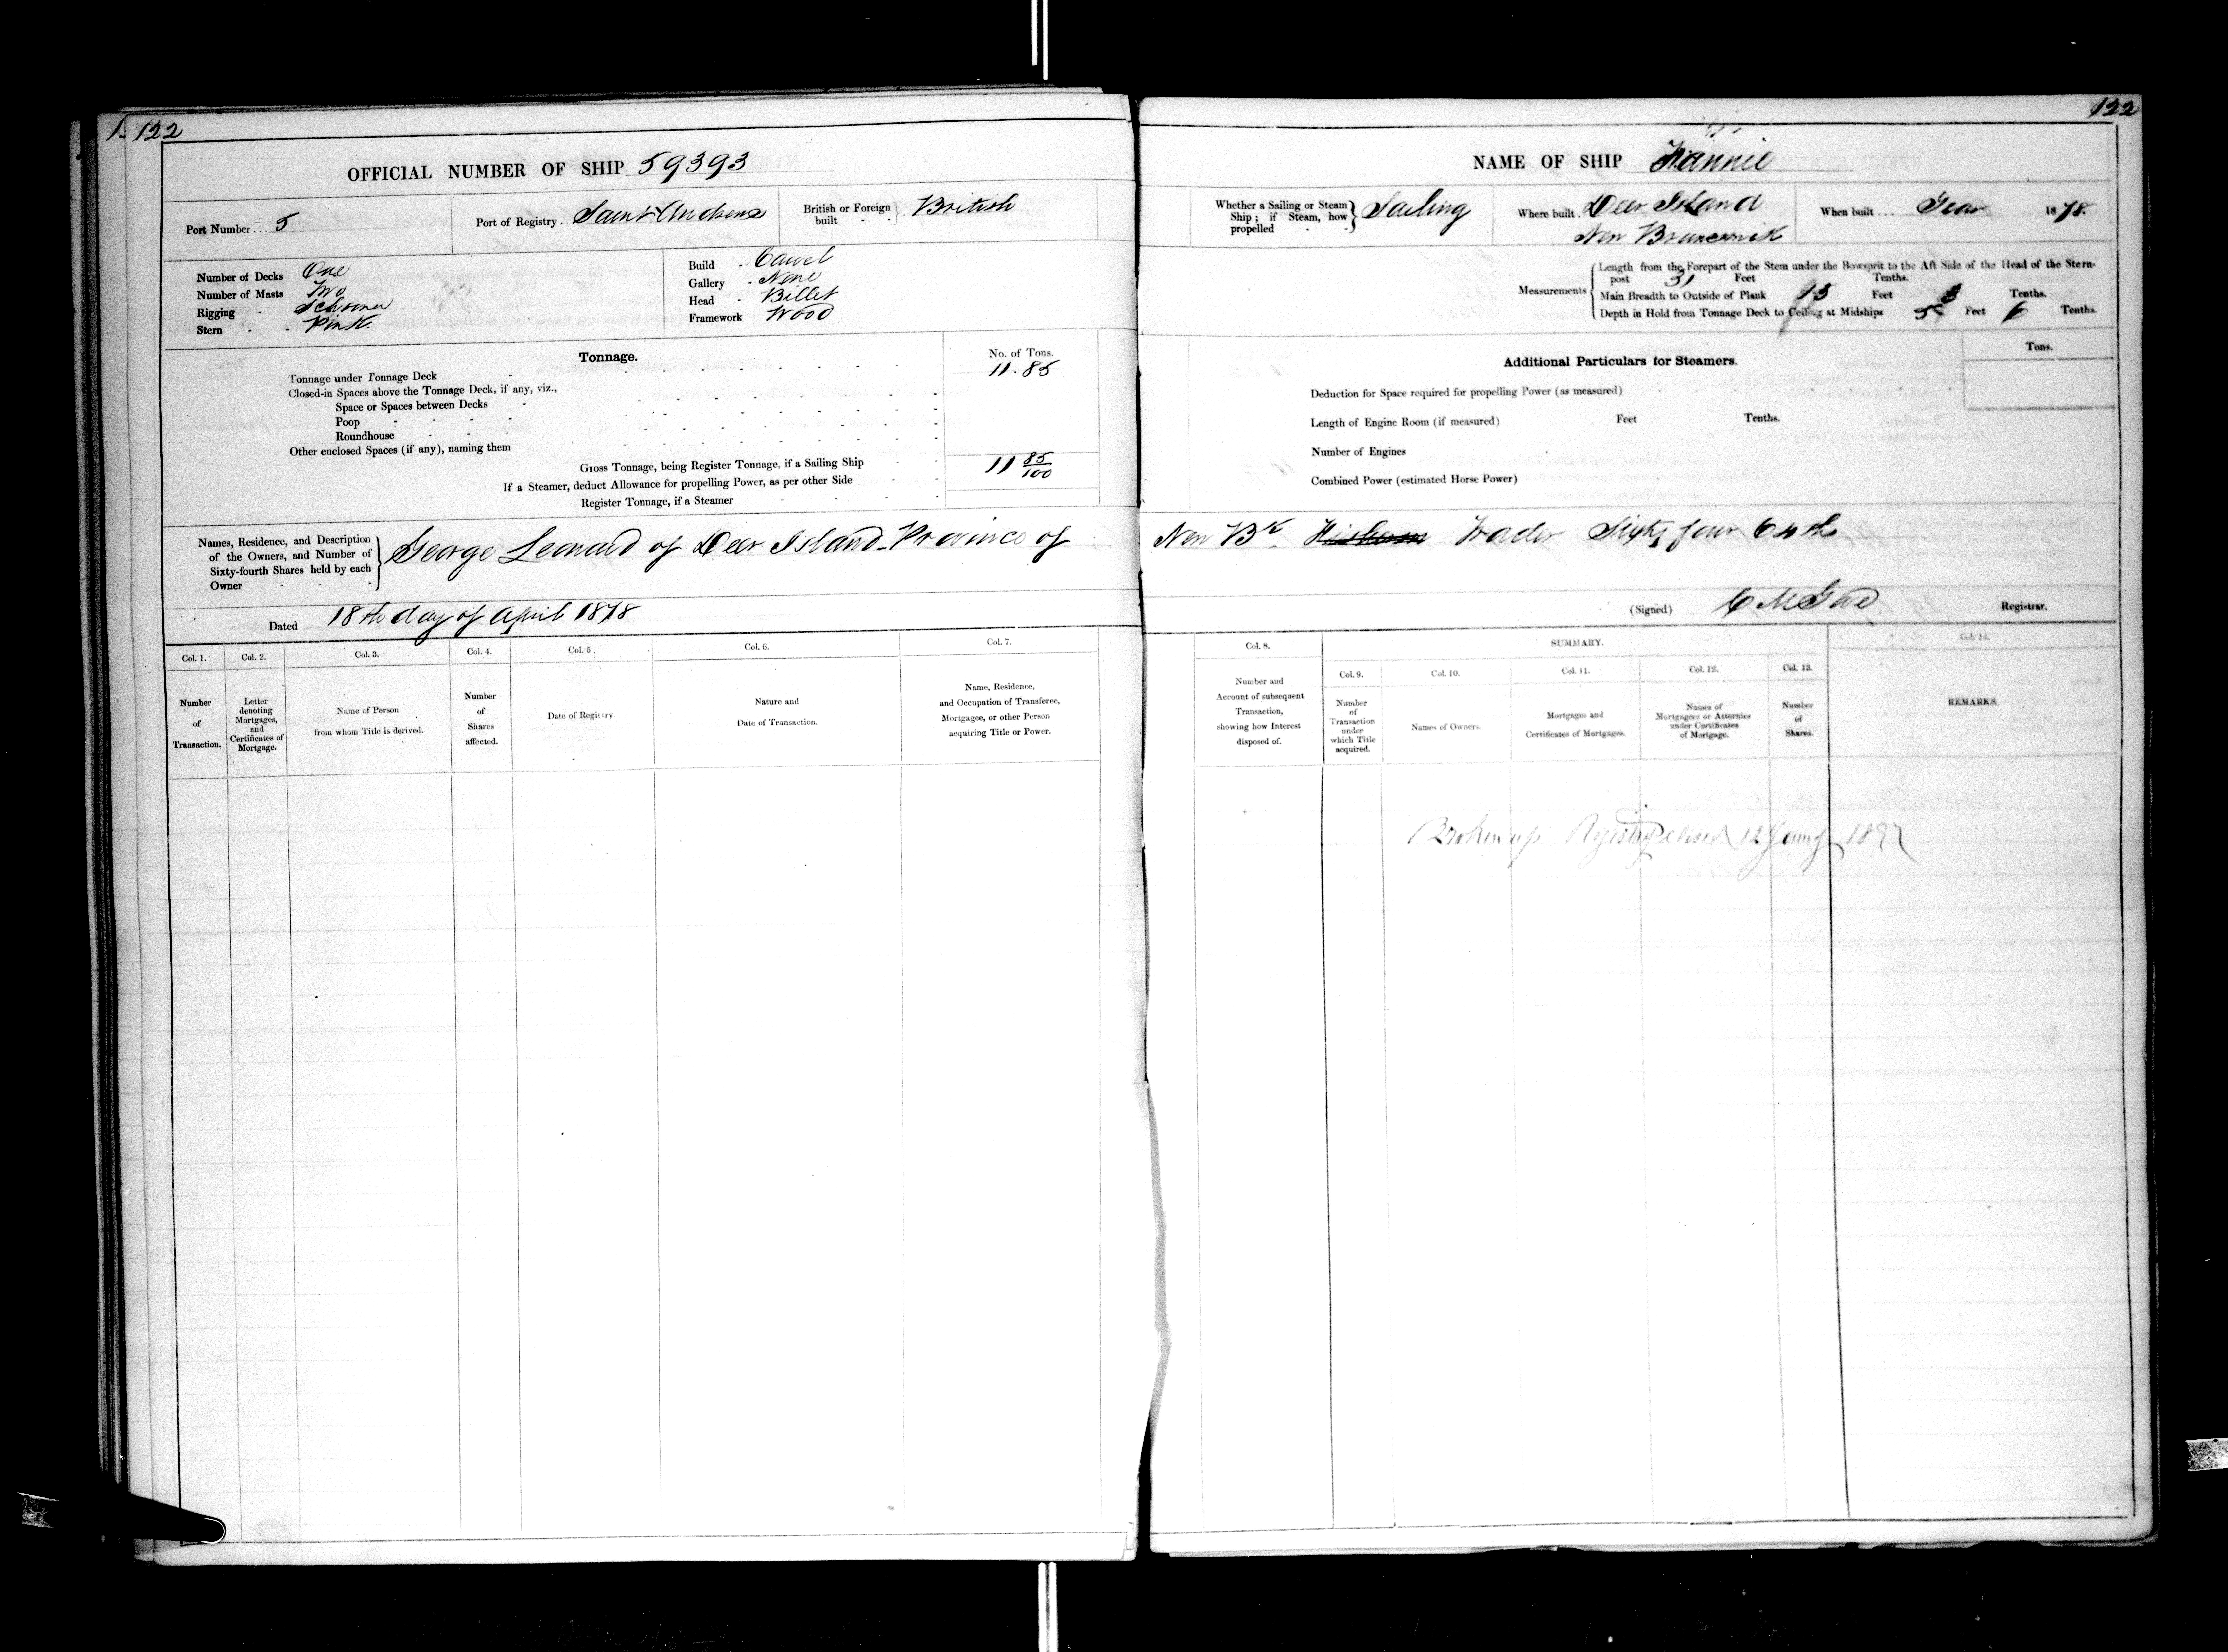 122
122
OFFICIAL NUMBER OF SHIP 59393
Port Number ... 5
Port of Registry .. Saint Andrews
British or Foreign built - - British
Number of Decks One
Number of Masts Two
Rigging - Schooner
Stern - - Pink
Build - Carvel
Gallery - None
Head - Billet
Framework Wood
Tonnage.
No. of Tons.
Tonnage under Tonnage Deck 11.85
Closed-in Spaces above the Tonnage Deck, if any, viz.,
Space or Spaces between Decks
Poop
Roundhouse
Other enclosed Spaces (if any), naming them
Gross Tonnage, being Register Tonnage, if a Sailing Ship 11 85/100
If a Steamer, deduct Allowance for propelling Power, as per other Side
Register Tonnage, if a Steamer
Names, Residence, and Description of the Owners, and Number of Sixty-fourth Shares held by each Owner
George Leonard of Deer Island Province of
Dated 18th day of April 1878
Col. 1.
Col. 2.
Col. 3.
Col. 4.
Col. 5.
Col. 6.
Col. 7.
Number of Transaction.
Letter denoting Mortgages, and Certificates of Mortgage.
Name of Person from whom Title is derived.
Number of Shares affected.
Date of Registry.
Nature and Date of Transaction.
Name, Residence, and Occupation of Transferee, Mortgagee, or other Person acquiring Title or Power.
NAME OF SHIP Fannie
Whether a Sailing or Steam Ship; if Steam, how propelled - - Sailing
Where built . Deer Island
New Brunswick
When built ... Year 1878.
Measurements
Length from the Forepart of the Stem under the Bowsprit to the Aft Side of the Head of the Stern-
post 31 Feet Tenths.
Main Breadth to Outside of Plank 13 Feet 3 Tenths.
Depth in Hold from Tonnage Deck to Ceiling at Midships 5 Feet 6 Tenths.
Additional Particulars for Steamers.
Tons.
Deduction for Space required for propelling Power (as measured)
Length of Engine Room (if measured) Feet Tenths.
Number of Engines
Combined Power (estimated Horse Power)
New Bk Trader Sixty four 64ths
(Signed) Registrar.
Col. 8.
SUMMARY.
Col. 14.
Col. 9.
Col. 10.
Col. 11.
Col. 12.
Col. 13.
Number and Account of subsequent Transaction, showing how Interest disposed of.
Number of Transaction under which Title acquired.
Names of Owners.
Mortgages and Certificates of Mortgages.
Names of Mortgagees or Attornies under Certificates of Mortgage.
Number of Shares.
REMARKS.
Broken up Registry closed 12 Jany